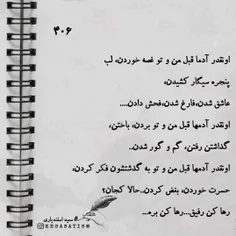 ۴۰۶
اونقدر آدما قبل من و تو غصه خوردن، لب
پنجره سیگار کشیدن،
عاشق شدن،فارغ شدن،فحش دادن....
اونقدر آدمها قبل من و تو بردن، باختن،
گذاشتن رفتن، گم و گور شدن..
اونقدر آدمها قبل من و تو به گذشتشون فکر کردن،
حسرت خوردن، بغض کردن..حالا کجان؟
رها کن رفیق...رها کن بره...
سید اسفندیاری
EHSANATISM